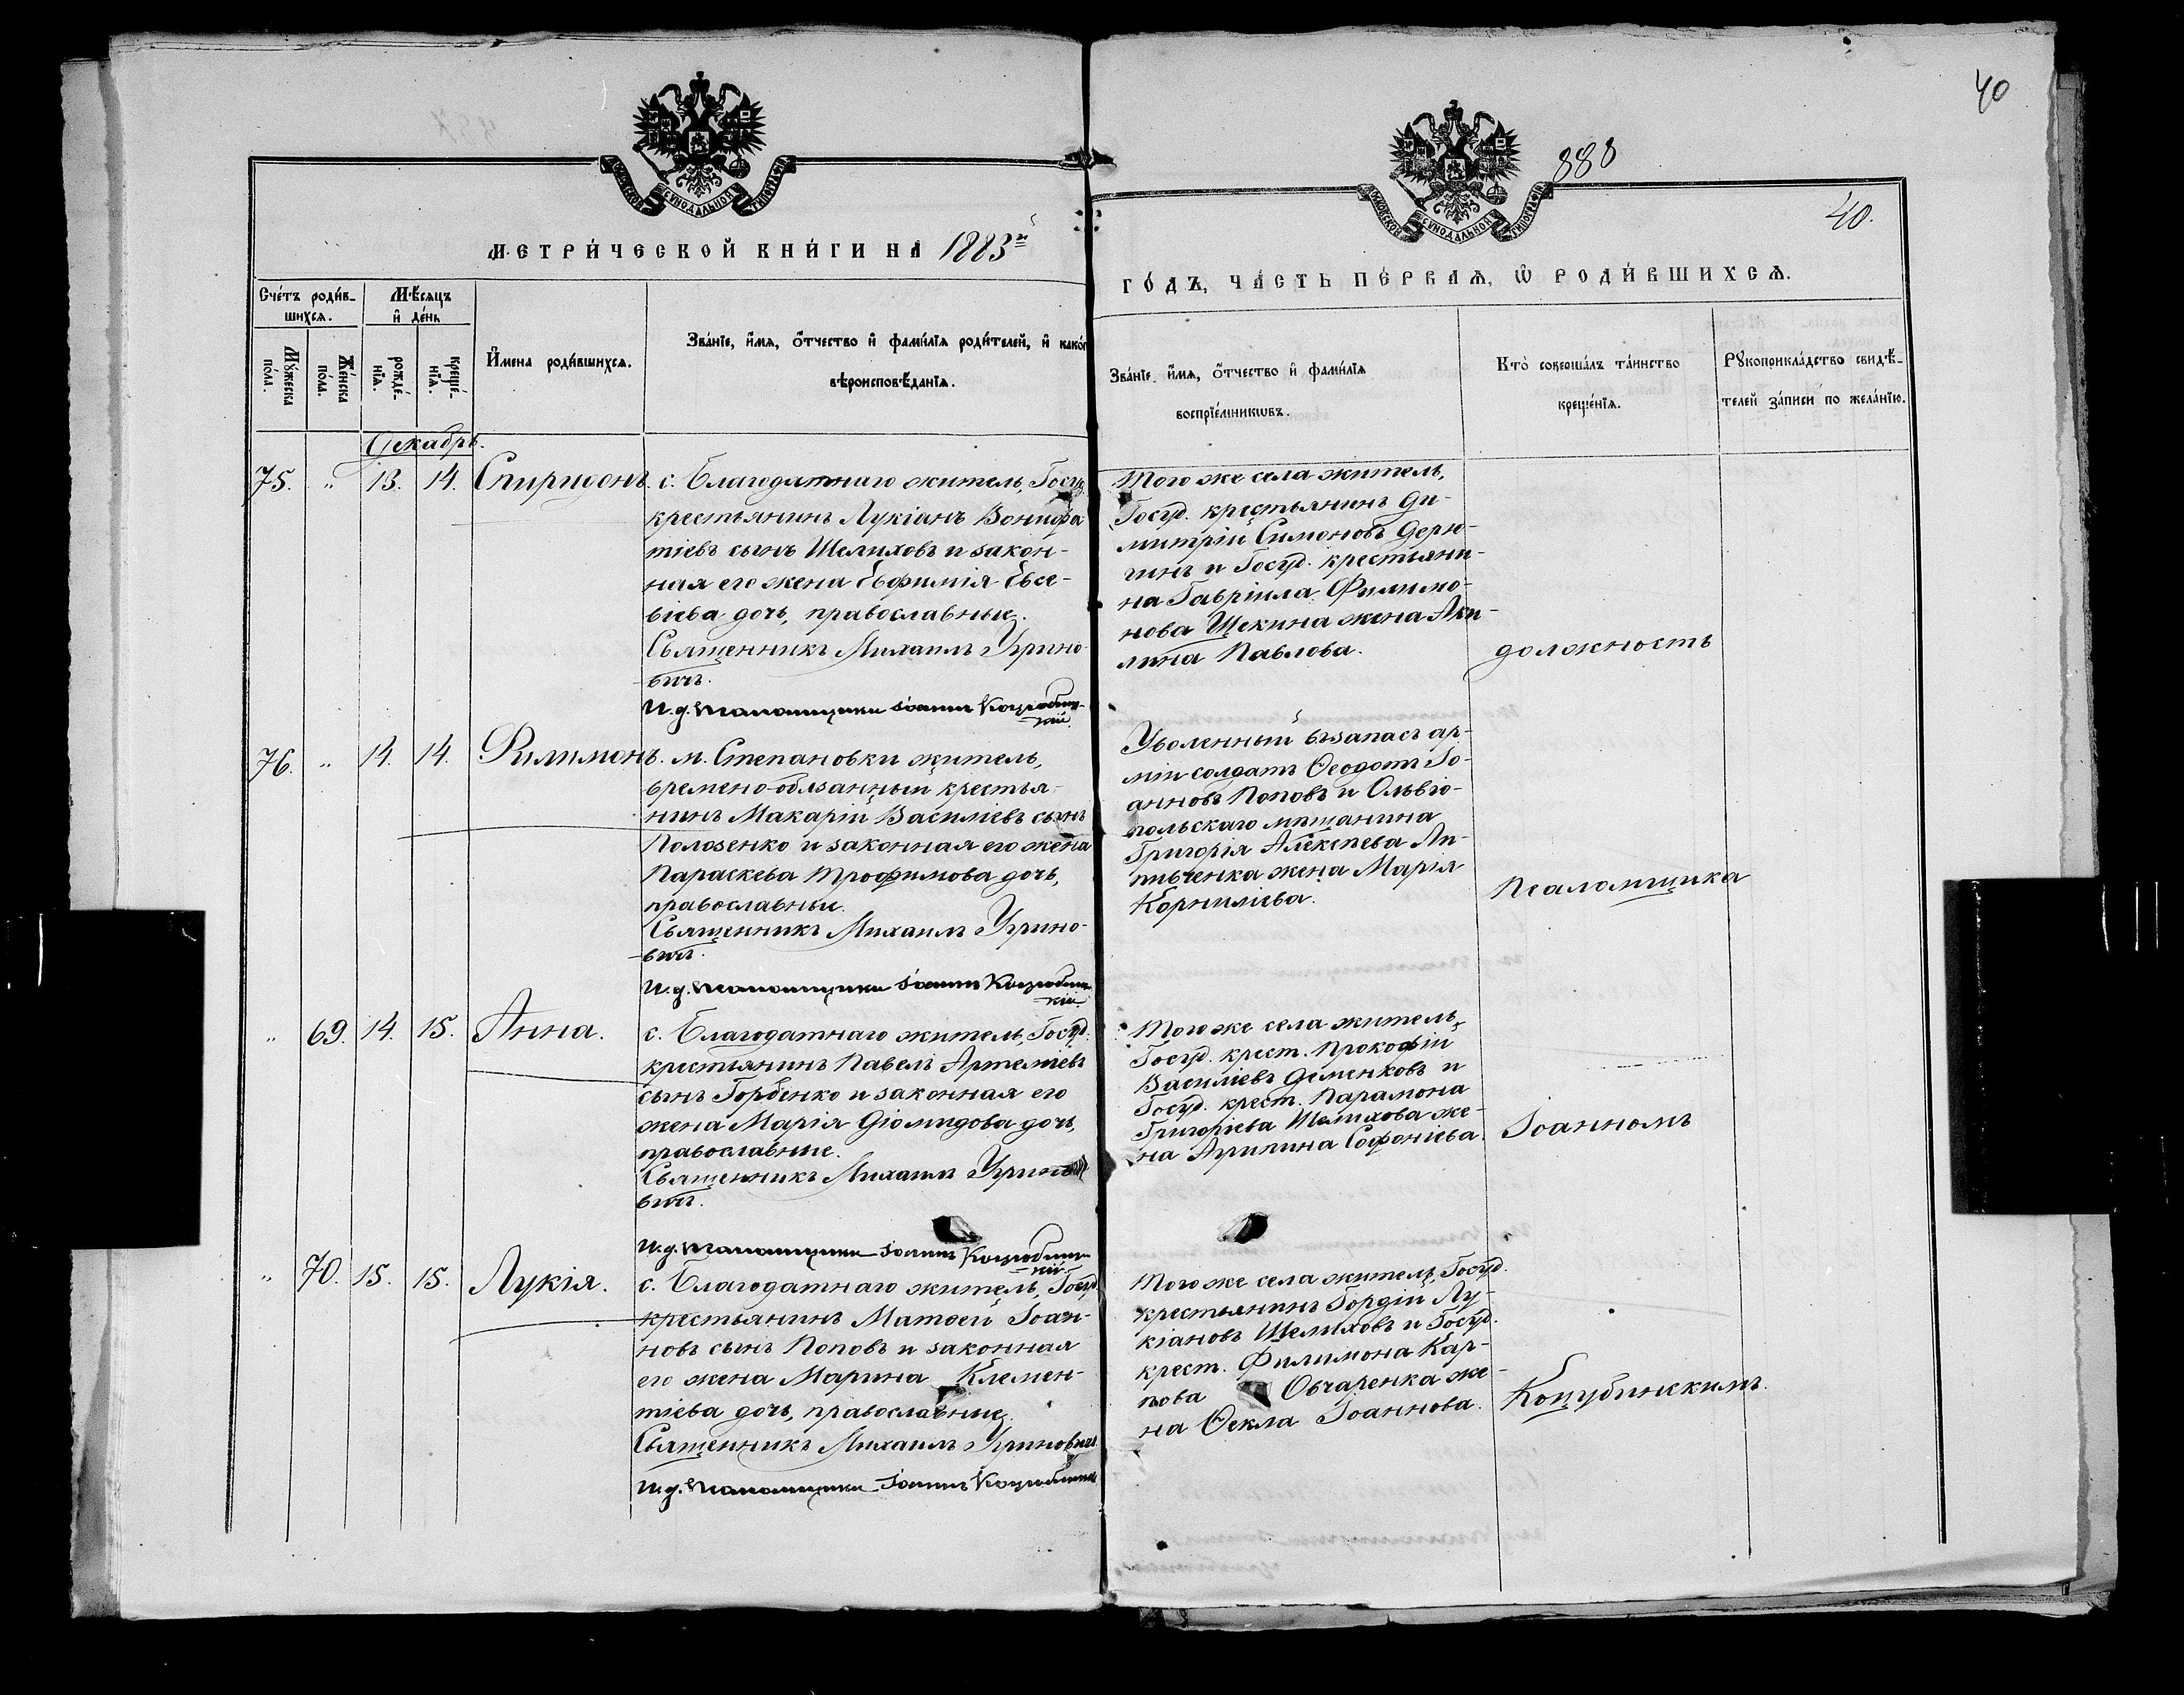 40
888
40.
МОСКОВСКОЙ СѴНОДАЛЬНОЙ ТИПОГРАФІИ
МОСКОВСКОЙ СѴНОДАЛЬНОЙ ТИПОГРАФІИ
МЕТРИ́ЧЕСКОЙ КНИ́ГИ НА 1883й
ГО́ДЪ, ЧА́СТЬ ПЕ́РВАѦ, Ѡ РОДИ́ВШИХСѦ.
Сче́тъ роди́в-
шихсѧ.
Мѣ́сѧцъ
и де́нь
Мꙋ́жеска
по́ла.
Же́нска
по́ла.
рожде́-
нїѧ.
креще́-
нїѧ.
И҆мена роди́вшихсѧ.
Зва́нїе, и҆́мѧ, ѻ҆́тчество и҆ фами́лїѧ роди́телей, и҆ како́г
вѣроисповѣ́данїѧ.
Зва́нїе, и҆́мѧ, ѻ҆́тчество и҆ фами́лїѧ
воспрїе́мникѡвъ.
Кто̀ соверша́лъ та́инство
креще́нїѧ.
Рꙋкоприкла́дство свидѣ́-
телей за́писи по жела́нїю.
Декабрь.
75. „ 13. 14. Спиридонъ. с. Благодатнаго житель, Госуд.
крестьянинъ Лукіанъ Вонифа
тіевъ сынъ Шелиховъ и закон-
ная его жена Евфимія Евсе-
віева дочь, православные.
Священникъ Михаилъ Угрино-
вичъ.
И.д. псаломщика Іоаннъ Коцюбин-
скій.
Того же села житель,
Госуд. крестьянинъ Ди-
митрій Симоновъ Дерю-
гинъ и Госуд. крестьяни-
на Гавріила Филимо-
нова Щекина жена Аки-
лина Павлова.
должность
76. „ 14. 14. Филимонъ. м. Степановки житель,
времено-обязанный крестья-
нинъ Макарій Василіевъ сынъ
Полозенко и законная его жена
Параскева Трофимова дочь,
православные.
Священникъ Михаилъ Угрино-
вичъ.
И.д. псаломщика Іоаннъ Коцюбинс-
кій
Уволенный въ запасъ ар-
міи солдатъ Ѳеодотъ Іо-
анновъ Поповъ и Ольвіо-
польскаго мѣщанина
Григорія Алексѣева
жена Марія
Корниліева.
Псаломщика
„ 69. 14. 15. Анна. с. Благодатнаго житель, Госуд.
крестьянинъ Павелъ Артеміевъ
сынъ Горбенко и законная его
жена Марія Діомидова дочь,
православные.
Священникъ Михаилъ Угрино
вичъ.
И.д. псаломщика Іоаннъ Коцюбинс-
кій
Того же села житель,
Госуд. крест. Прокофій
Василіевъ Деменковъ и
Госуд. крест. Парамона
Григоріева Шелихова же-
на Агрипина Софоніева.
Іоанномъ
„ 70. 15. 15. Лукія. с. Благодатнаго житель, Госуд
крестьянинъ Матѳей Іоан-
новъ сынъ Поповъ и законная
его жена Марина Клемен-
тіева дочь, православные.
Священникъ Михаилъ Угриновичъ
И.д. псаломщика Іоаннъ Коцюбинс
Того же села житель, Госуд.
крестьянинъ Гордій Лу-
кіановъ Шелиховъ и Госуд.
крест. Филимона Кар-
пова Овчаренка же-
на Ѳекла Іоаннова.
Коцубинскимъ.